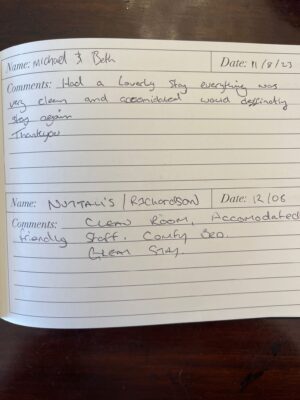 Name: Michael & Beth Date: 11/8/23
Comments: Had a Loverly Stay everything was
very clean and accomidated would deffinatly
stay again
Thankyou
Name: NUTTALL'S / RICHARDSON Date: 12/08
Comments: CLEAN ROOM, Accomodated
friendly Staff. Comfy BED.
GREAT STAY.